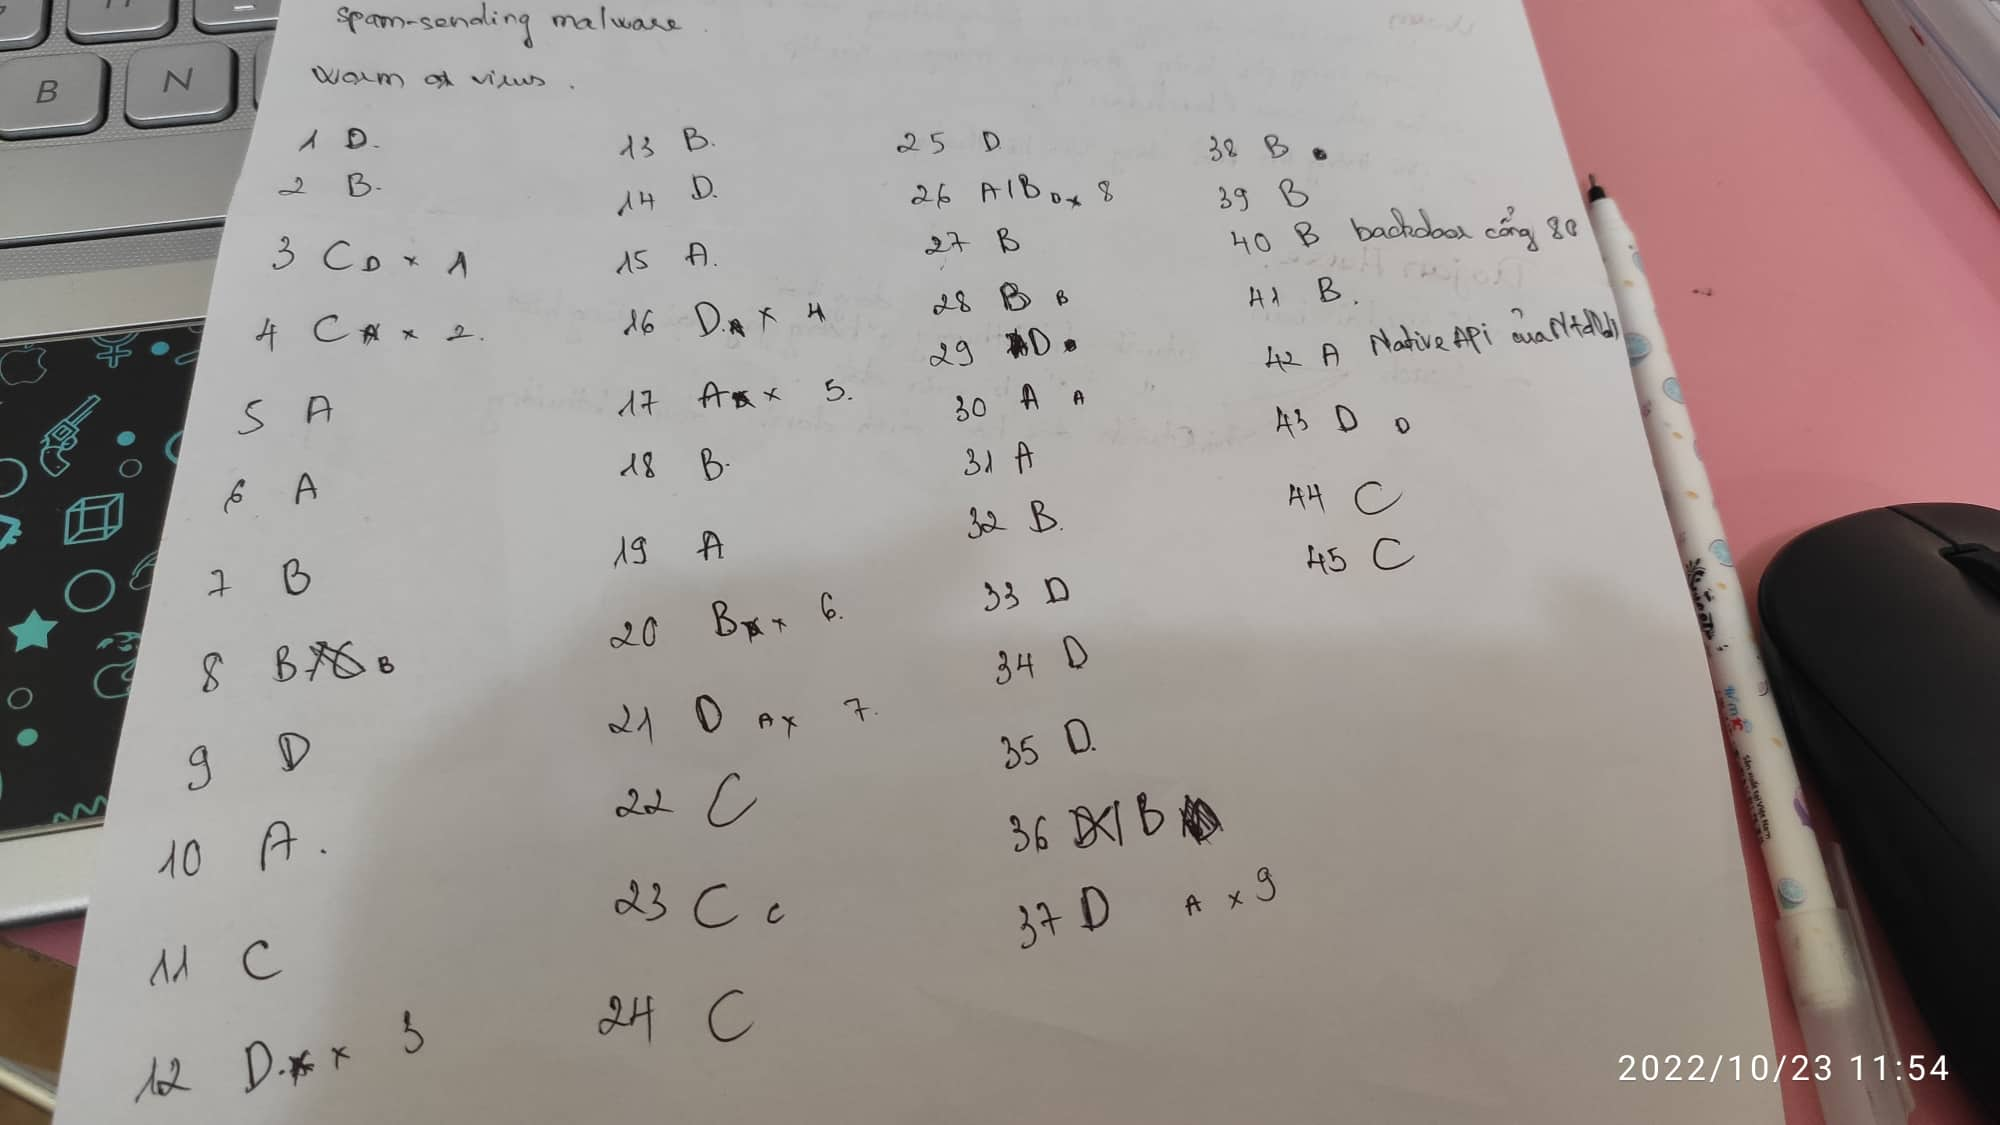 B
N
spam-sending malware.
worm or virus.
1 D.
2 B.
3 C D x 1
4 C A x 2.
5 A
6 A
7 B
8 B B
9 D
10 A.
11 C
12 D. x 3
13 B.
14 D.
15 A.
16 D. A x 4
17 A x 5.
18 B.
19 A
20 B x 6.
21 D A x 7.
22 C
23 C c
24 C
25 D
26 A/B D x 8
27 B
28 B B
29 D.
30 A A
31 A
32 B.
33 D
34 D
35 D.
36 B
37 D A x 9
38 B.
39 B
40 B backdoor cổng 80
41 B.
42 A Native API của
43 D D
44 C
45 C
Sản xuất tại Việt Nam
2022/10/23 11:54